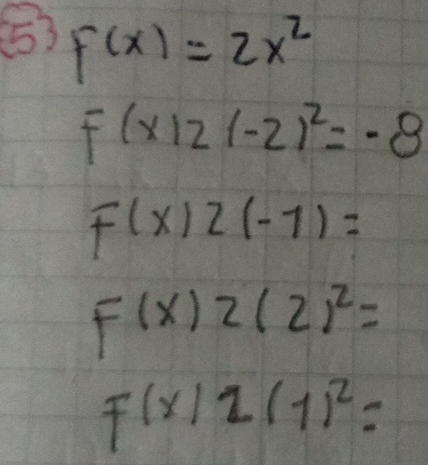 5) F(x) = 2x²
F(x) 2 (-2)² = -8
F(x) 2 (-1) =
F(x) 2 (2)² =
F(x) 2 (1)² =